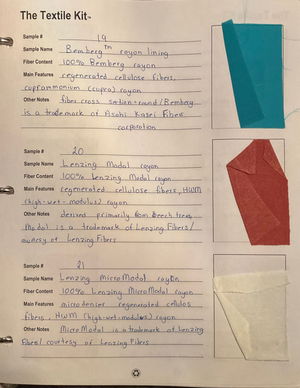 The Textile Kit™
Sample # 19
Sample Name Bemberg™ rayon lining
Fiber Content 100% Bemberg rayon
Main Features regenerated cellulose fibers,
cuprammonium (cupra) rayon
Other Notes fiber cross section-round/Bemberg
is a trademark of Asahi Kasei Fibers
corporation
Sample # 20
Sample Name Lenzing Modal rayon
Fiber Content 100% Lenzing Modal rayon
Main Features regenerated cellulose fibers, HWM
(high-wet-modulus) rayon
Other Notes derived primarily from beech trees,
Modal is a trademark of Lenzing Fibers/
courtesy of Lenzing Fibers
Sample # 21
Sample Name Lenzing MicroModal rayon
Fiber Content 100% Lenzing MicroModal rayon
Main Features microdenier regenerated cellulos
fibers, HWM (high-wet-modulus) rayon
Other Notes MicroModal is a trademark of Lenzing
Fibers/ courtesy of Lenzing Fibers